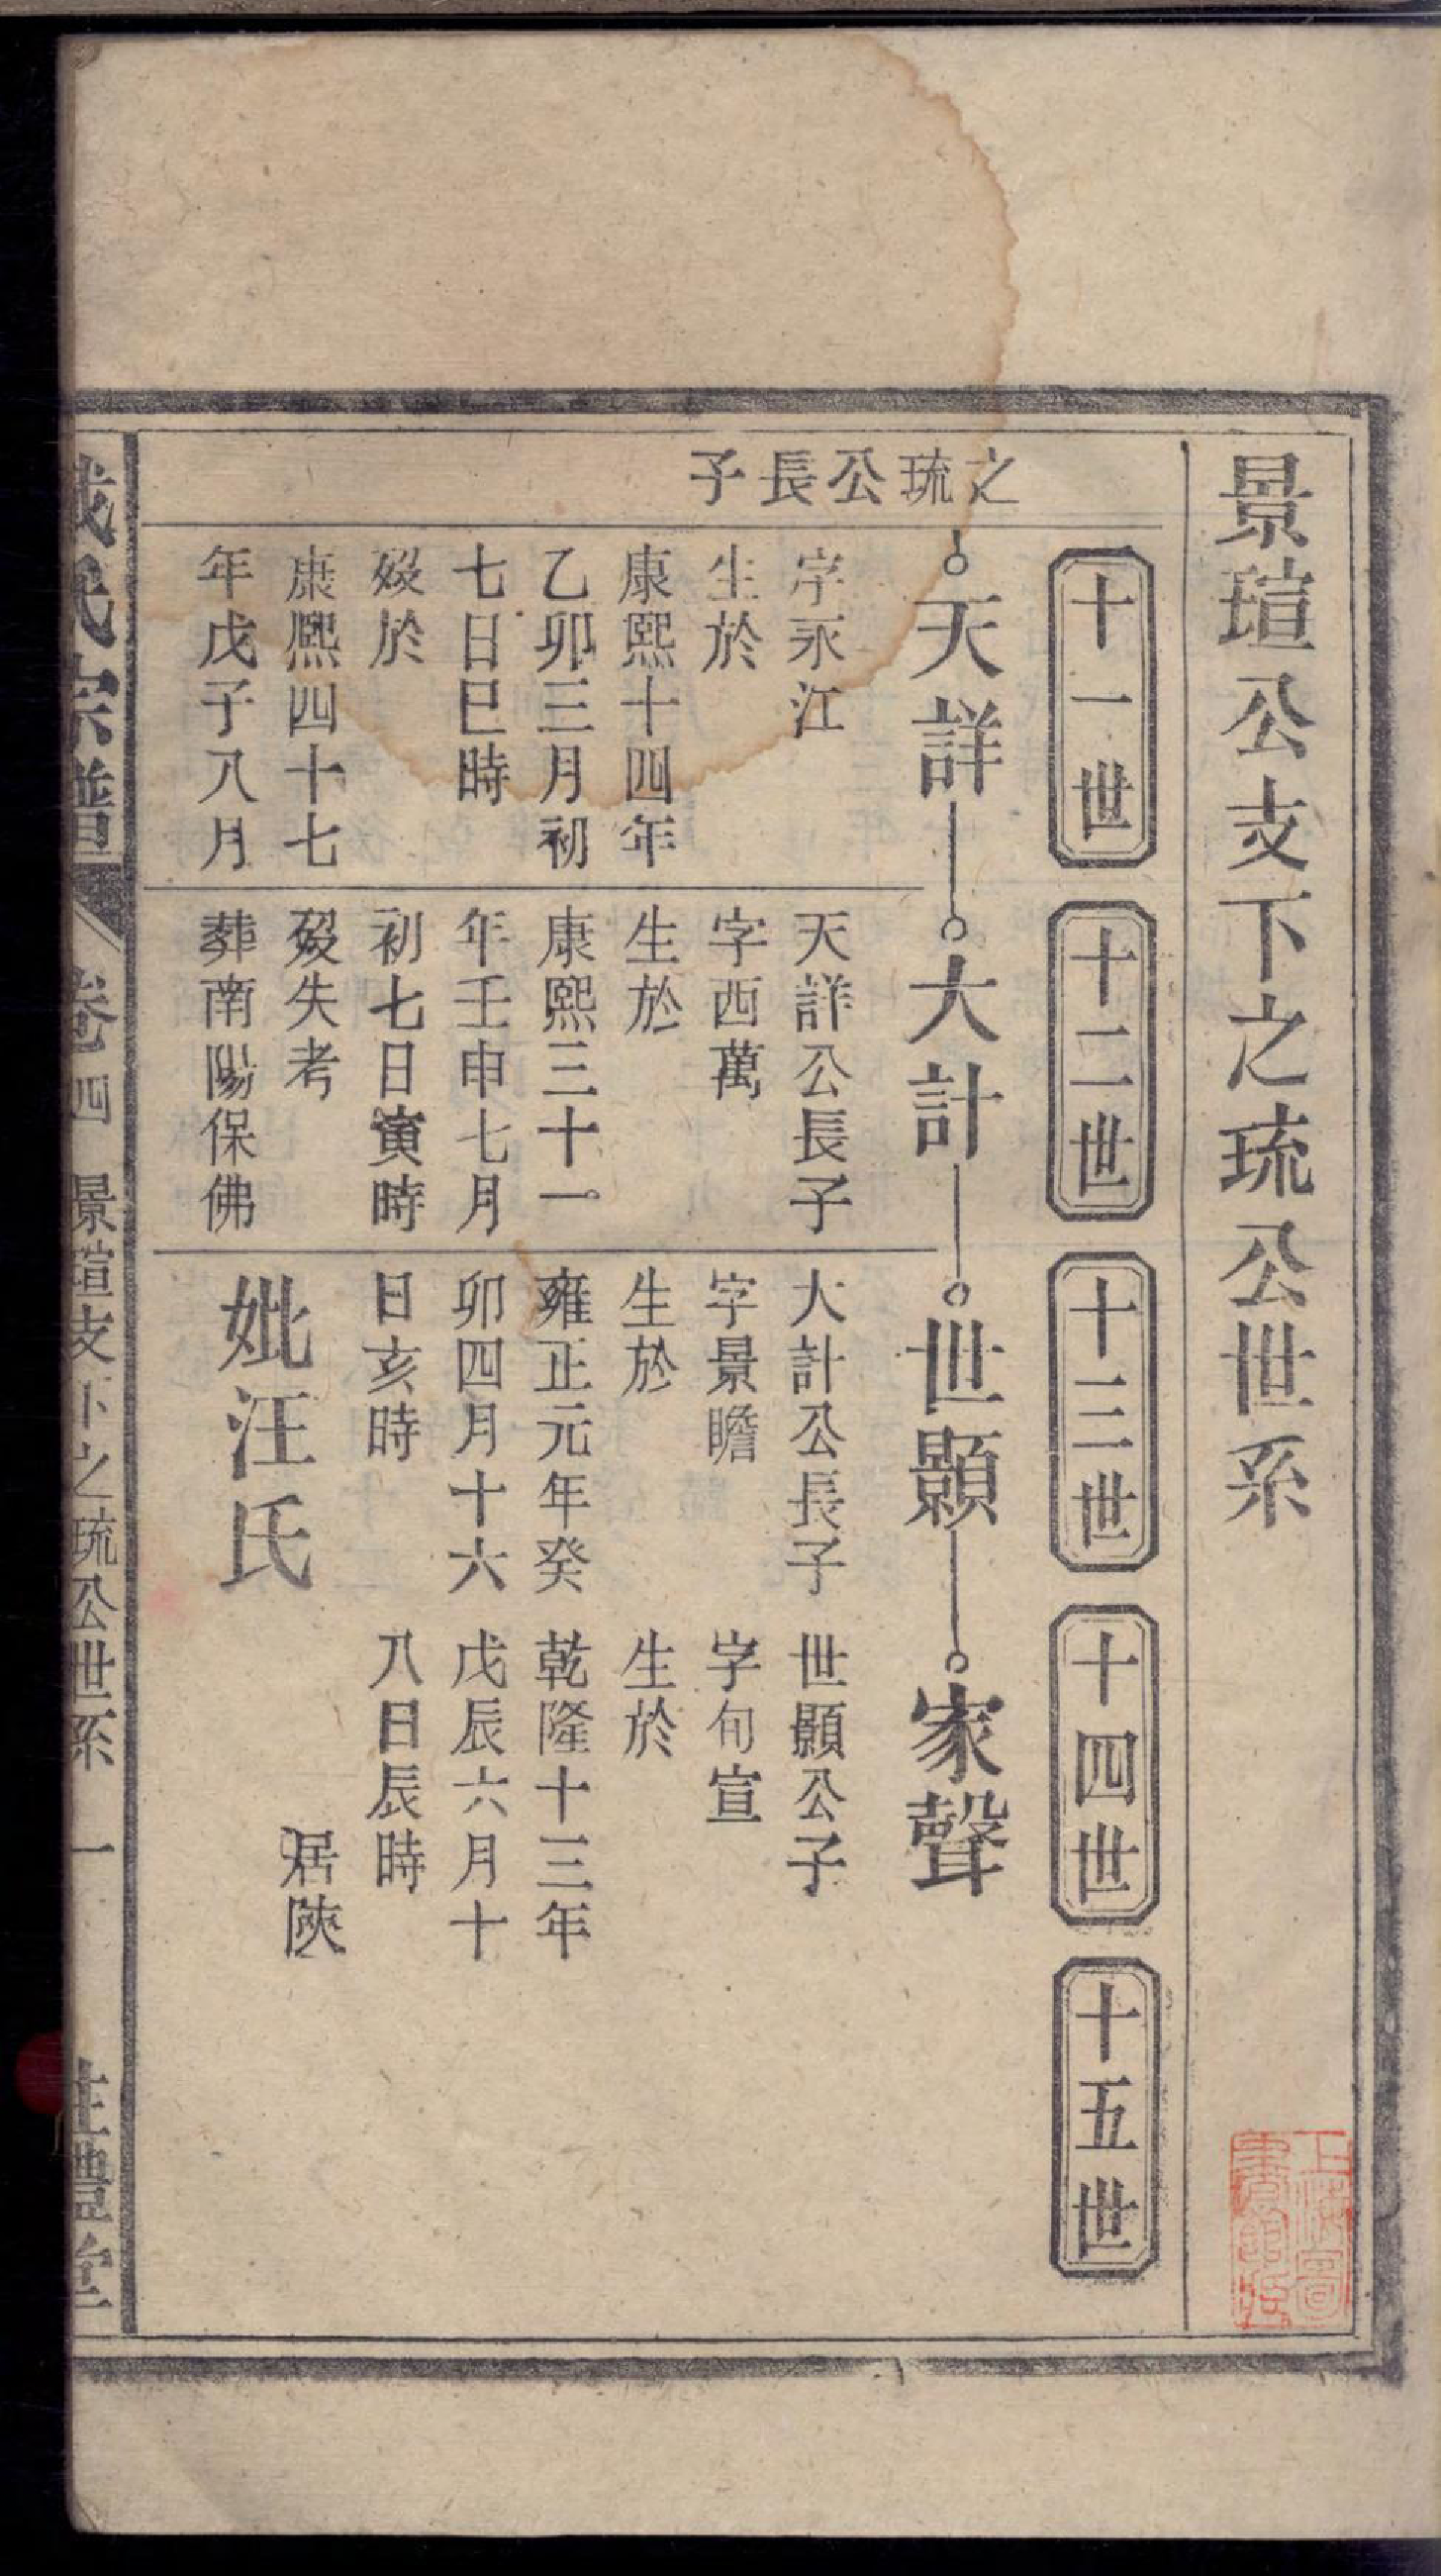 景瑄公支下之琉公世系
十一世
十二世
十三世
十四世
十五世
之琉公長子
天詳
字永江
生於
康熙十四年
乙卯三月初
七日巳時
歿於
康熙四十七
年戊子八月
大計
天詳公長子
字西萬
生於
康熙三十一
年壬申七月
初七日寅時
歿失考
葬南陽保佛
世顯
大計公長子
字景瞻
生於
雍正元年癸
卯四月十六
日亥時
妣汪氏
家聲
世顯公子
字旬宣
生於
乾隆十三年
戊辰六月十
八日辰時
居陜
氏宗譜
卷四
景瑄支下之琉公世系
一
禮堂